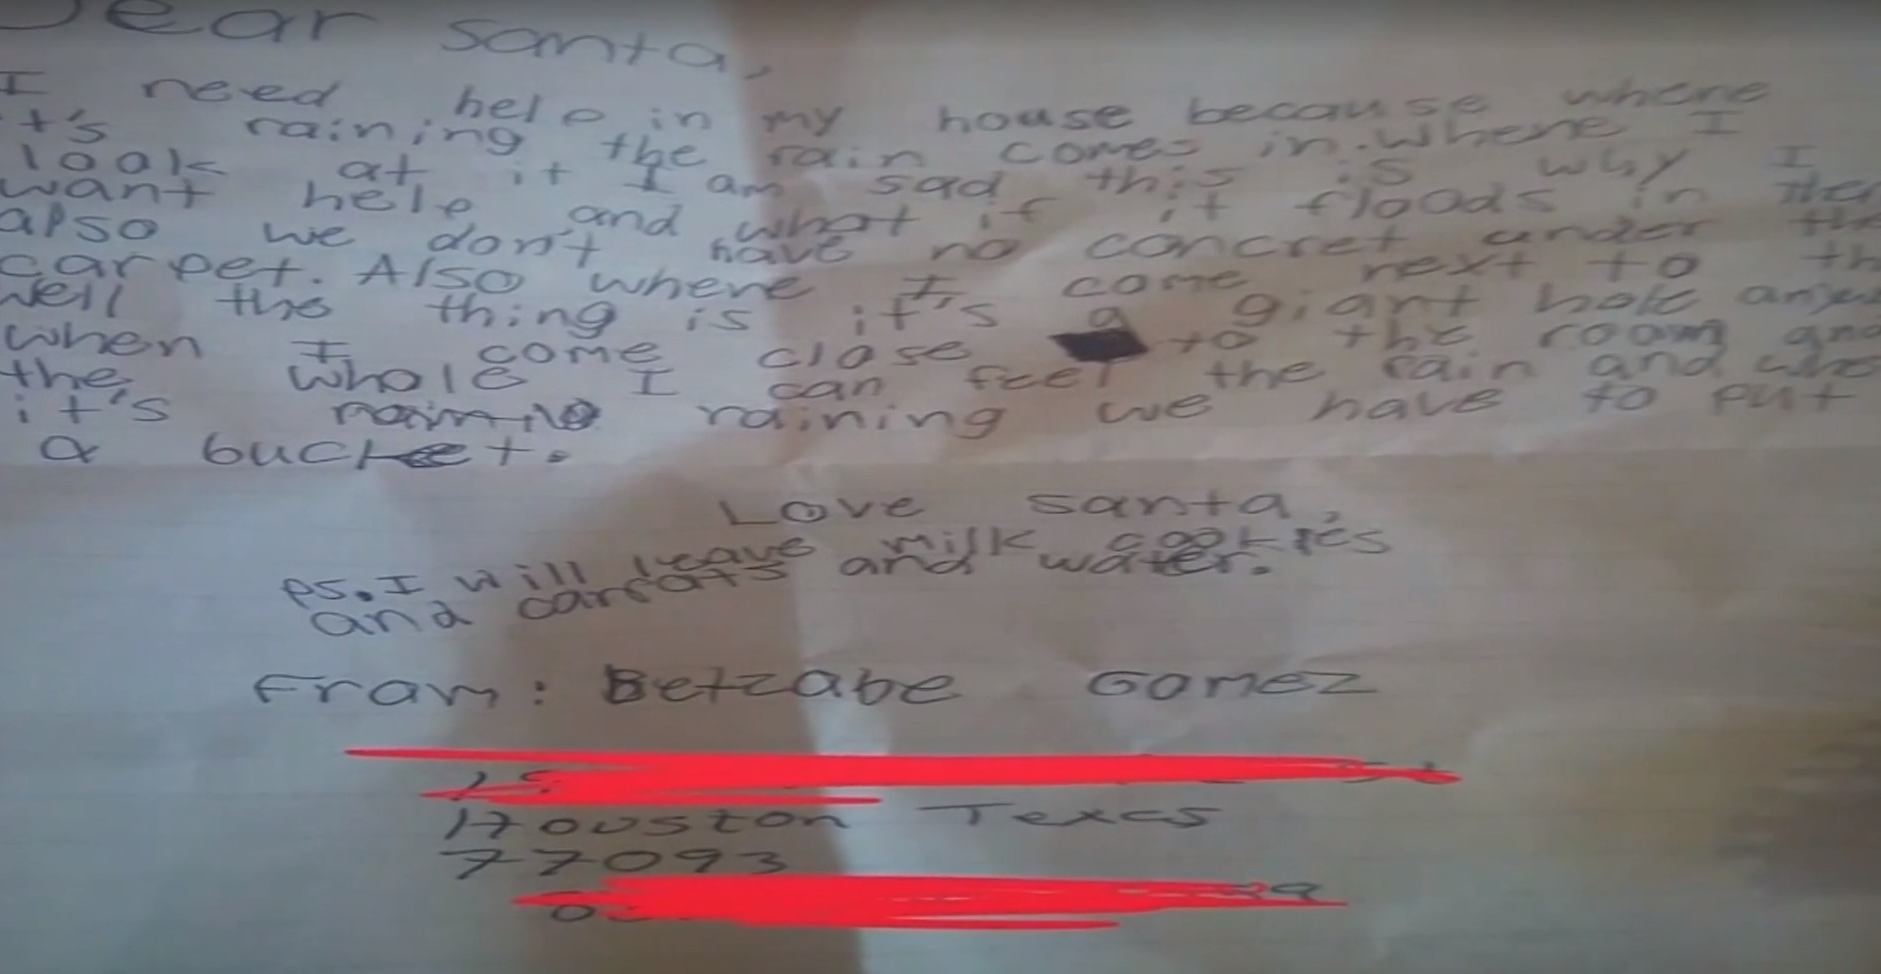 Dear Santa,
I need help in my house because where
it's raining the rain comes in. Where I
look at it I am sad this is why I
want help and what if it floods in then
also we don't have no concret under the
carpet. Also where I come next to th
well the thing is it's a giant hole
when I come close to the room and
the whole I can feel the rain and
it's raining we have to put
a bucket.
Love Santa,
Ps. I will leave milk cookies
and carrats and water.
From: Betzabe Gomez
Houston Texas
77093